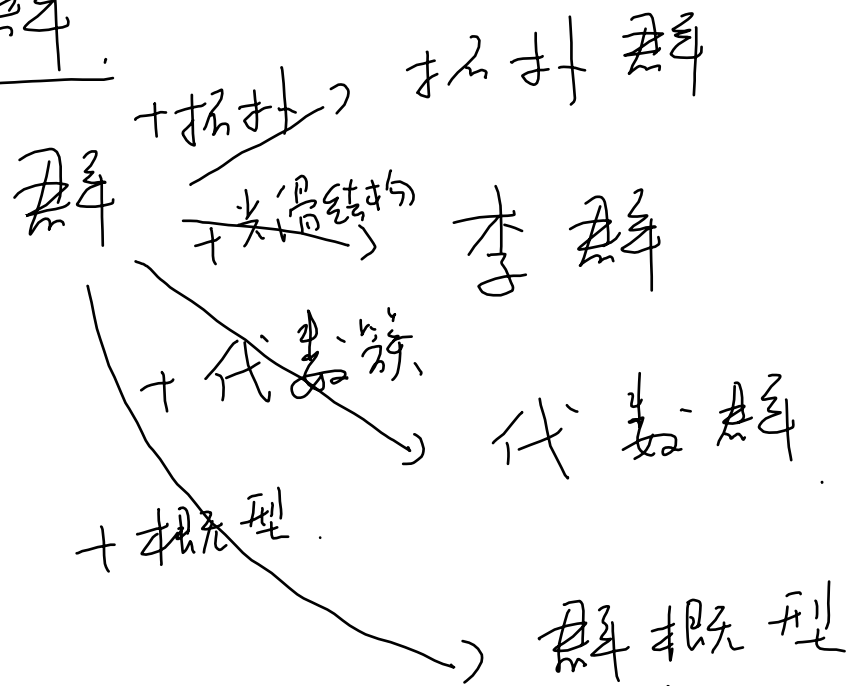 群.
+拓扑 拓扑群
群
+光滑结构 李群
+代数簇 代数群.
+概型. 群概型